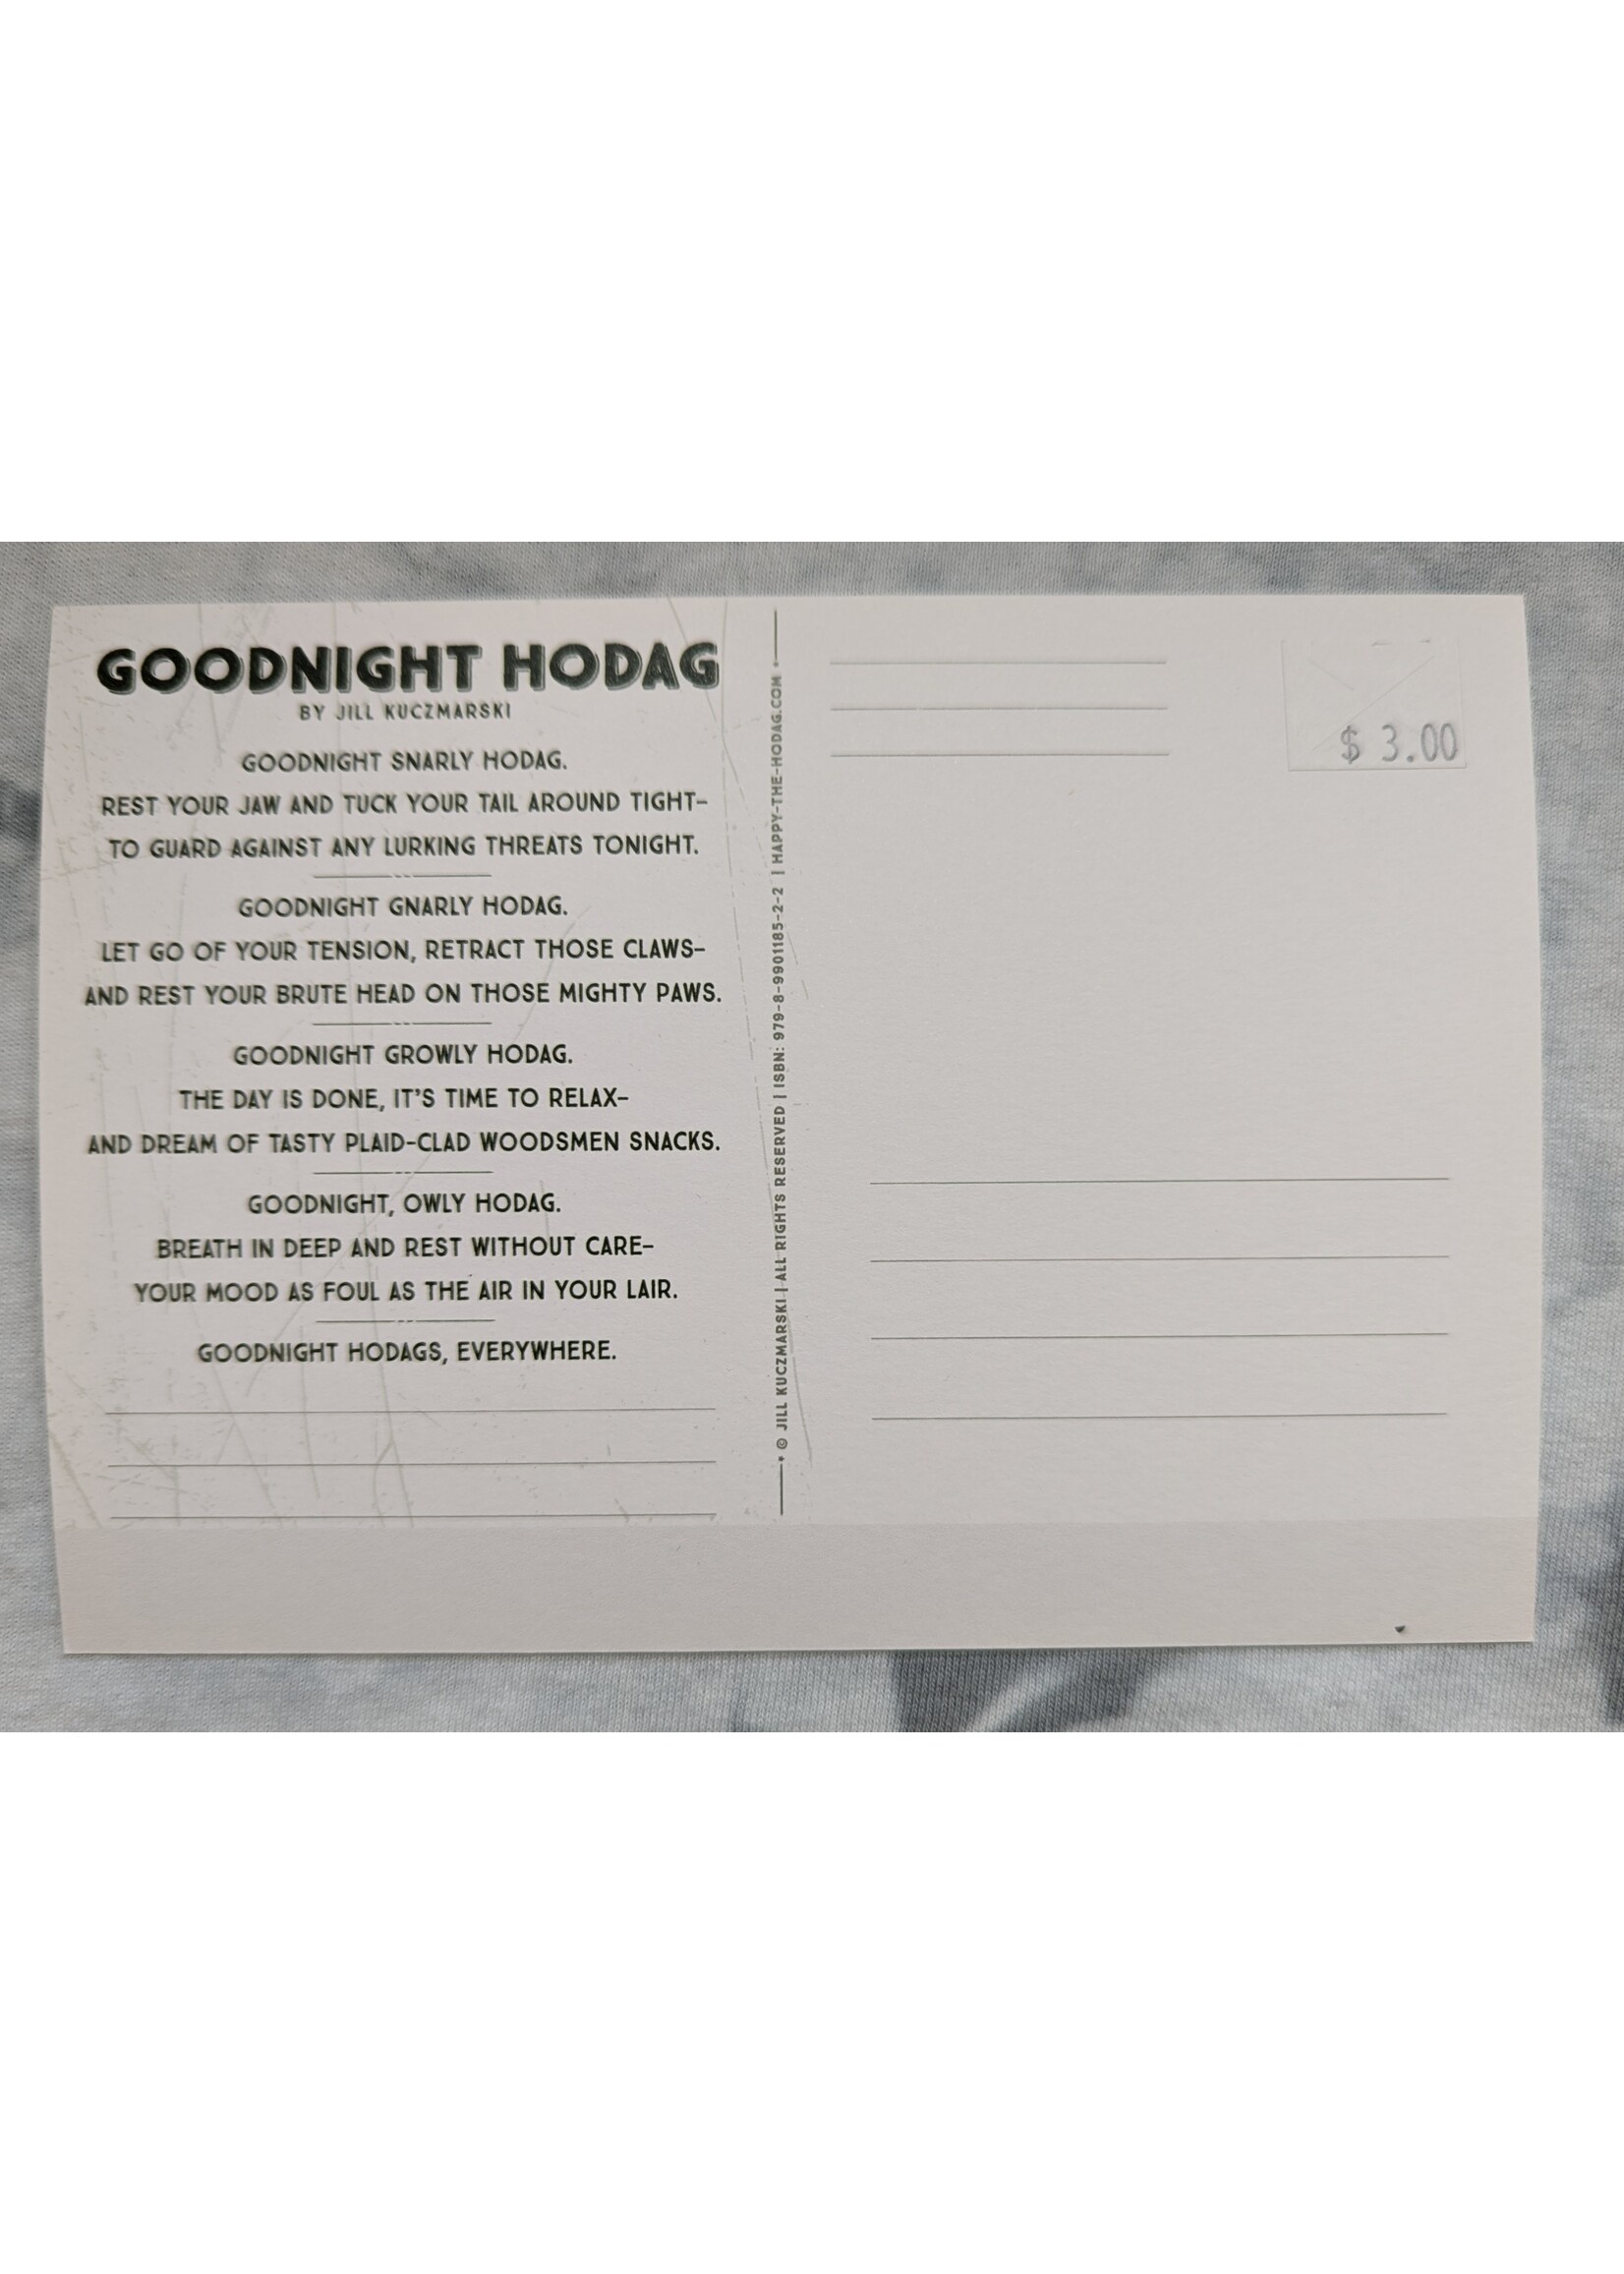 GOODNIGHT HODAG
BY JILL KUCZMARSKI
GOODNIGHT SNARLY HODAG.
REST YOUR JAW AND TUCK YOUR TAIL AROUND TIGHT–
TO GUARD AGAINST ANY LURKING THREATS TONIGHT.
GOODNIGHT GNARLY HODAG.
LET GO OF YOUR TENSION, RETRACT THOSE CLAWS–
AND REST YOUR BRUTE HEAD ON THOSE MIGHTY PAWS.
GOODNIGHT GROWLY HODAG.
THE DAY IS DONE, IT'S TIME TO RELAX–
AND DREAM OF TASTY PLAID-CLAD WOODSMEN SNACKS.
GOODNIGHT, OWLY HODAG.
BREATH IN DEEP AND REST WITHOUT CARE–
YOUR MOOD AS FOUL AS THE AIR IN YOUR LAIR.
GOODNIGHT HODAGS, EVERYWHERE.
© JILL KUCZMARSKI | ALL RIGHTS RESERVED | ISBN: 979-8-9901185-2-2 | HAPPY-THE-HODAG.COM
$ 3.00